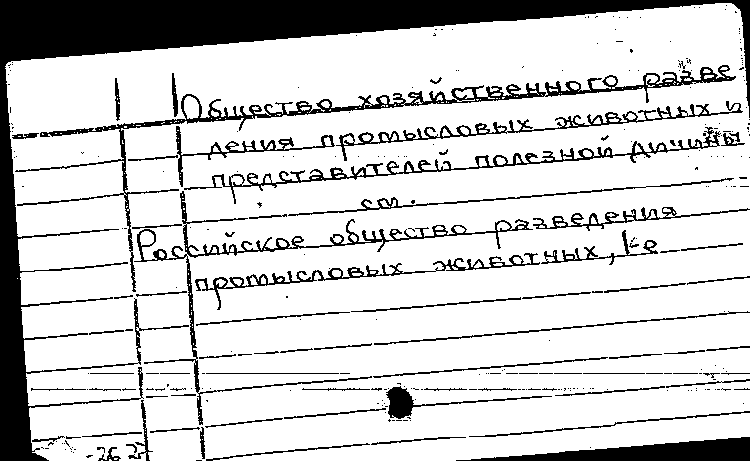 Общество хозяйственного разве
дения промысловых животных и
представителей полезной дичины
см.
Российское общество разведения
промысловых животных,
262